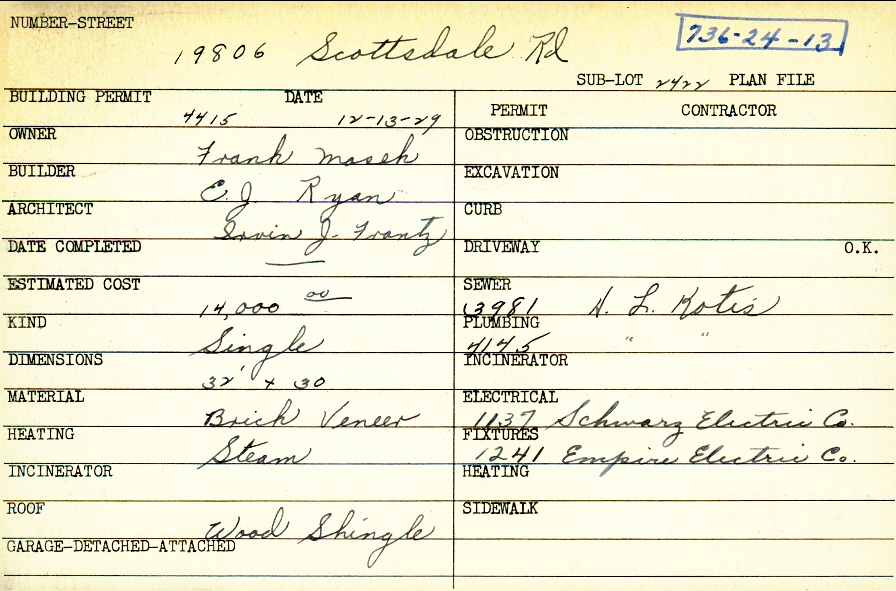 NUMBER-STREET
19806 Scottsdale Rd
736-24-13
SUB-LOT 2422 PLAN FILE
BUILDING PERMIT DATE
4415 12-13-29
OWNER
Frank Masek
BUILDER
E. J. Ryan
ARCHITECT
Irvin J. Frantz
DATE COMPLETED
ESTIMATED COST
14,000 00
KIND
Single
DIMENSIONS
32' x 30
MATERIAL
Brick Veneer
HEATING
Steam
INCINERATOR
ROOF
Wood Shingle
GARAGE-DETACHED-ATTACHED
PERMIT CONTRACTOR
OBSTRUCTION
EXCAVATION
CURB
DRIVEWAY O.K.
SEWER
13981 H. L. Kotis
PLUMBING
4145 " "
INCINERATOR
ELECTRICAL
1137 Schwarz Electric Co.
FIXTURES
1241 Empire Electric Co.
HEATING
SIDEWALK